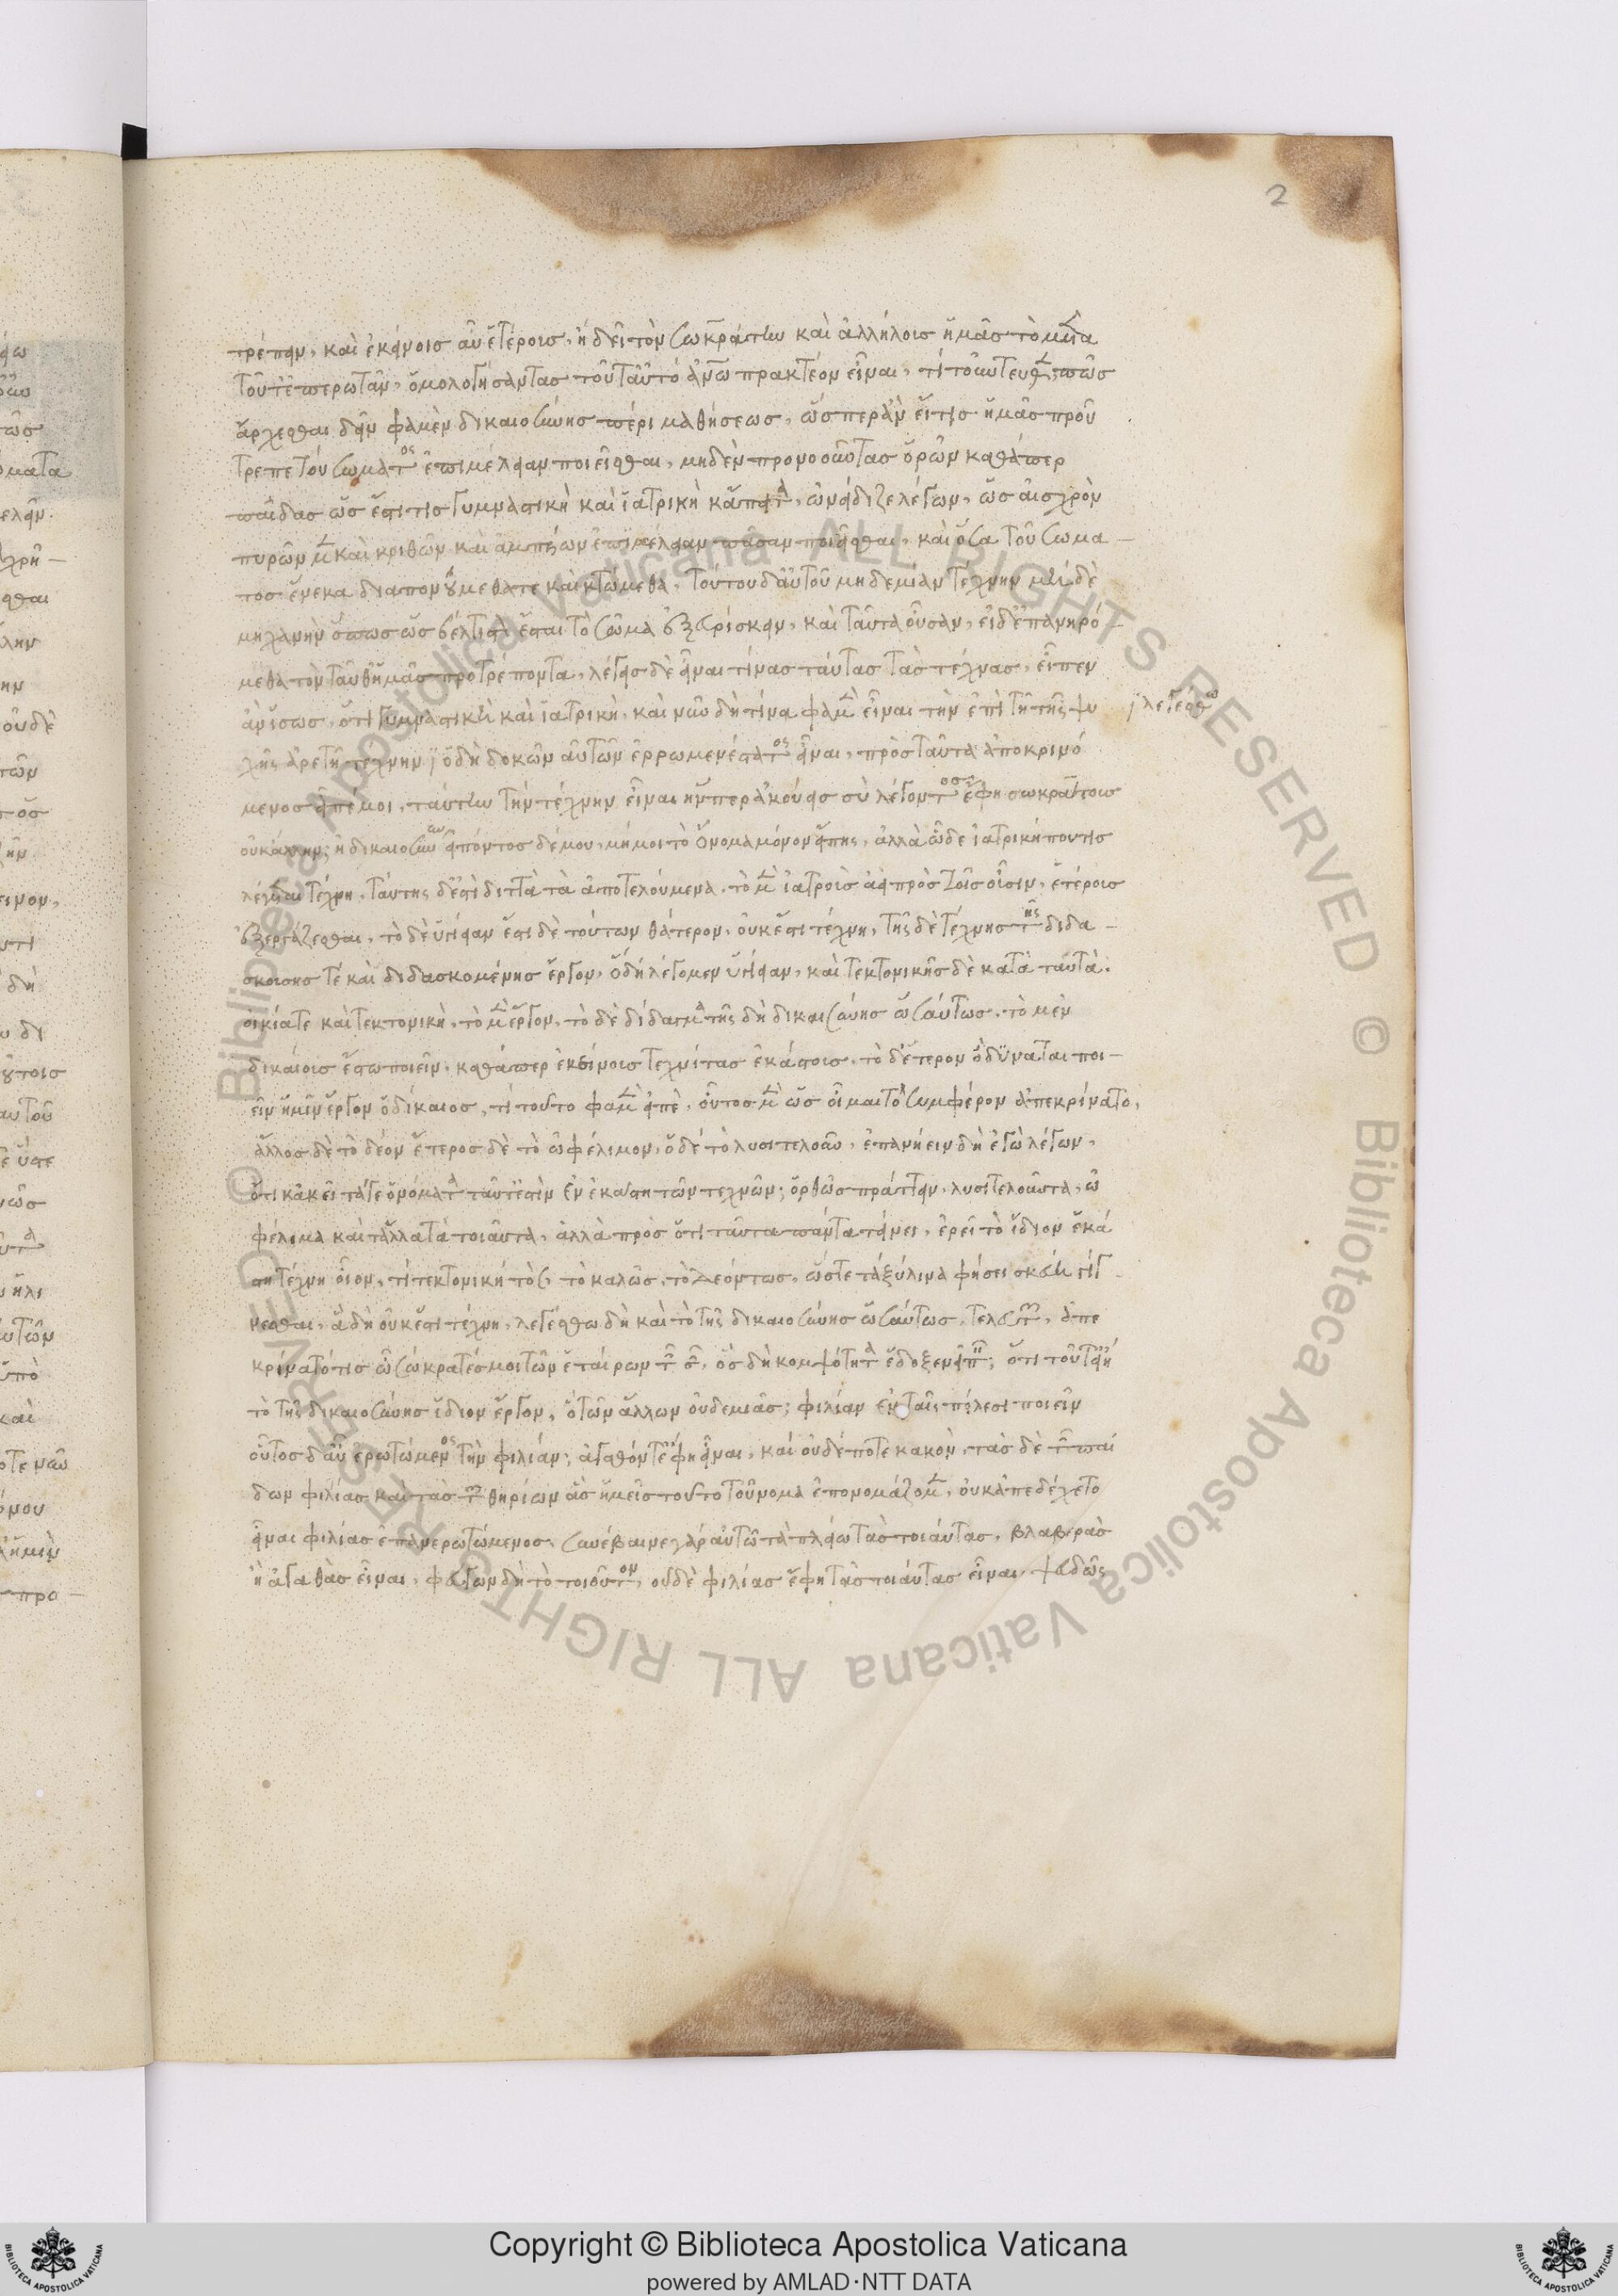 2
τρέπειν, καὶ ἐκείνοισ αὖ ἑτέροισ, ἢ δεῖ τὸν σωκράτην καὶ ἀλλήλοισ ἡμᾶσ τὸ μετὰ
τοῦτ' ἐπερωτᾶν, ὁμολογήσαντασ τοῦτ' αὐτὸ ἀν̅ω̅ πρακτέον εἶναι, τί τοὐντεῦθεν; πῶσ
ἄρχεσθαι δεῖν φαμὲν δικαιοσύνησ πέρι μαθήσεωσ, ὥσπερ ἂν εἴ τισ ἡμᾶσ προὔ
τρεπε τοῦ σώματος ἐπιμέλειαν ποιεῖσθαι, μηδὲν προνοοῦντασ ὁρῶν καθάπερ
παῖδασ ὡσ ἔστι τισ γυμναστικὴ καὶ ἰατρικὴ κἄπειτα, ὠνείδιζε λέγων, ὡσ αἰσχρὸν
πυρῶν μὲν καὶ κριθῶν καὶ ἀμπέλων ἐπιμέλειαν πᾶσαν ποιεῖσθαι, καὶ ὅσα τοῦ σώμα
τοσ ἕνεκα διαπονούμεθά τε καὶ κτώμεθα, τούτου δ' αὐτοῦ μηδεμίαν τέχνην μηδὲ
μηχανὴν ὅπωσ ὡσ βέλτιστα ἔσται τὸ σῶμα ἐξευρίσκειν, καὶ ταῦτα οὖσαν, εἰ δ' ἐπανηρό
μεθα τὸν ταῦθ' ἡμᾶσ προτρέποντα, λέγεισ δὲ εἶναι τίνασ ταύτασ τὰσ τέχνασ, εἶπεν
ἂν ἴσωσ, ὅτι γυμναστικὴ καὶ ἰατρικὴ, καὶ νῦν δὴ τίνα φαμὲν εἶναι τὴν ἐπὶ τῇ τῆς ψυ
χῆς ἀρετῇ τέχνην ὁ δὴ δοκῶν αὐτῶν ἐρρωμενέστατος εἶναι, πρὸσ ταῦτα ἀποκρινό
λεγέσθω
μενοσ εἶπέ μοι, ταύτην τὴν τέχνην εἶναι ἥνπερ ἀκούεισ σὺ λέγοντος ἔφη σωκράτουσ
οὐκ ἄλλην; ἢ δικαιοσύνην εἰπόντοσ δέ μου, μή μοι τὸ ὄνομα μόνον εἴπῃς, ἀλλὰ ὧδε ἰατρική πού τισ
λέγεται τέχνη, ταύτης δ' ἐστὶ διττὰ τὰ ἀποτελούμενα, τὸ μὲν ἰατροὺσ ἀεὶ πρὸσ τοῖσ οὖσιν, ἑτέρουσ
ἐξεργάζεσθαι, τὸ δὲ ὑγίειαν ἔστι δὲ τούτων θάτερον, οὐκέτι τέχνη, τῆς δὲ τέχνησ τῆς διδα
σκούσησ τὲ καὶ διδασκομένησ ἔργον, ὃ δὴ λέγομεν ὑγίειαν, καὶ τεκτονικῆσ δὲ κατὰ ταὐτὰ.
οἰκία τε καὶ τεκτονικὴ, τὸ μὲν ἔργον, τὸ δὲ δίδαγμα τῆς δὴ δικαιοσύνησ ὡσαύτωσ. τὸ μὲν
δικαίουσ ἔστω ποιεῖν, καθάπερ ἐκεῖ τεχνίτασ ἑκάστουσ, τὸ δ' ἕτερον ὃ δύναται ποι
εῖν ἡμῖν ἔργον ὁ δίκαιοσ, τί τοῦτο φαμὲν εἰπὲ, οὗτοσ μὲν ὡσ οἶμαι τὸ συμφέρον ἀπεκρίνατο,
ἄλλοσ δὲ τὸ δέον ἕτεροσ δὲ τὸ ὠφέλιμον, ὁ δὲ τὸ λυσιτελοῦν, ἐπανῄειν δὴ ἐγὼ λέγων,
ὅτι κἀκεῖ τά γε ὀνόματα ταῦτ' ἐστὶν ἐν ἑκάστῃ τῶν τεχνῶν; ὀρθῶσ πράττειν, λυσιτελοῦντα, ὠ
φέλιμα καὶ τἄλλα τὰ τοιαῦτα, ἀλλὰ πρὸσ ὅτι ταῦτα πάντα τείνει, ἐρεῖ τὸ ἴδιον ἑκά
στη τέχνη οἷον, τί τεκτονικὴ τὸ εὖ, τὸ καλῶσ, τὸ δεόντωσ, ὥστε τὰ ξύλινα φήσει σκεύη γίγ
νεσθαι, ἃ δὴ οὐκέτι τέχνη, λεγέσθω δὴ καὶ τὸ τῆς δικαιοσύνησ ὡσαύτωσ, τελευτῶν, ἀπε
κρίνατό τισ ὦ σώκρατέσ μοι τῶν ἑταίρων τῶν σῶν, ὃσ δὴ κομψότητα ἔδοξεν εἰπεῖν; ὅτι τοῦτ' εἴη
τὸ τῆς δικαιοσύνησ ἴδιον ἔργον, ὃ τῶν ἄλλων οὐδεμιᾶσ; φιλίαν ἐν ταῖς πόλεσι ποιεῖν
οὗτοσ δ' αὖ ἐρωτώμενος τὴν φιλίαν; ἀγαθόν τ' ἔφη εἶναι, καὶ οὐδέποτε κακὸν, τὰσ δὲ τῶν παί
δων φιλίασ καὶ τὰσ τῶν θηρίων ἃσ ἡμεῖσ τοῦτο τοὔνομα ἐπονομάζομεν, οὐκ ἀπεδέχετο
εἶναι φιλίασ ἐπανερωτώμενοσ, συνέβαινε γὰρ αὐτῷ τὰ πλείω τὰσ τοιαύτασ, βλαβερὰσ
ἢ ἀγαθὰσ εἶναι, φεύγων δὴ τὸ τοιοῦτον, οὐδὲ φιλίασ ἔφη τὰσ τοιαύτασ εἶναι, ψευδῶς